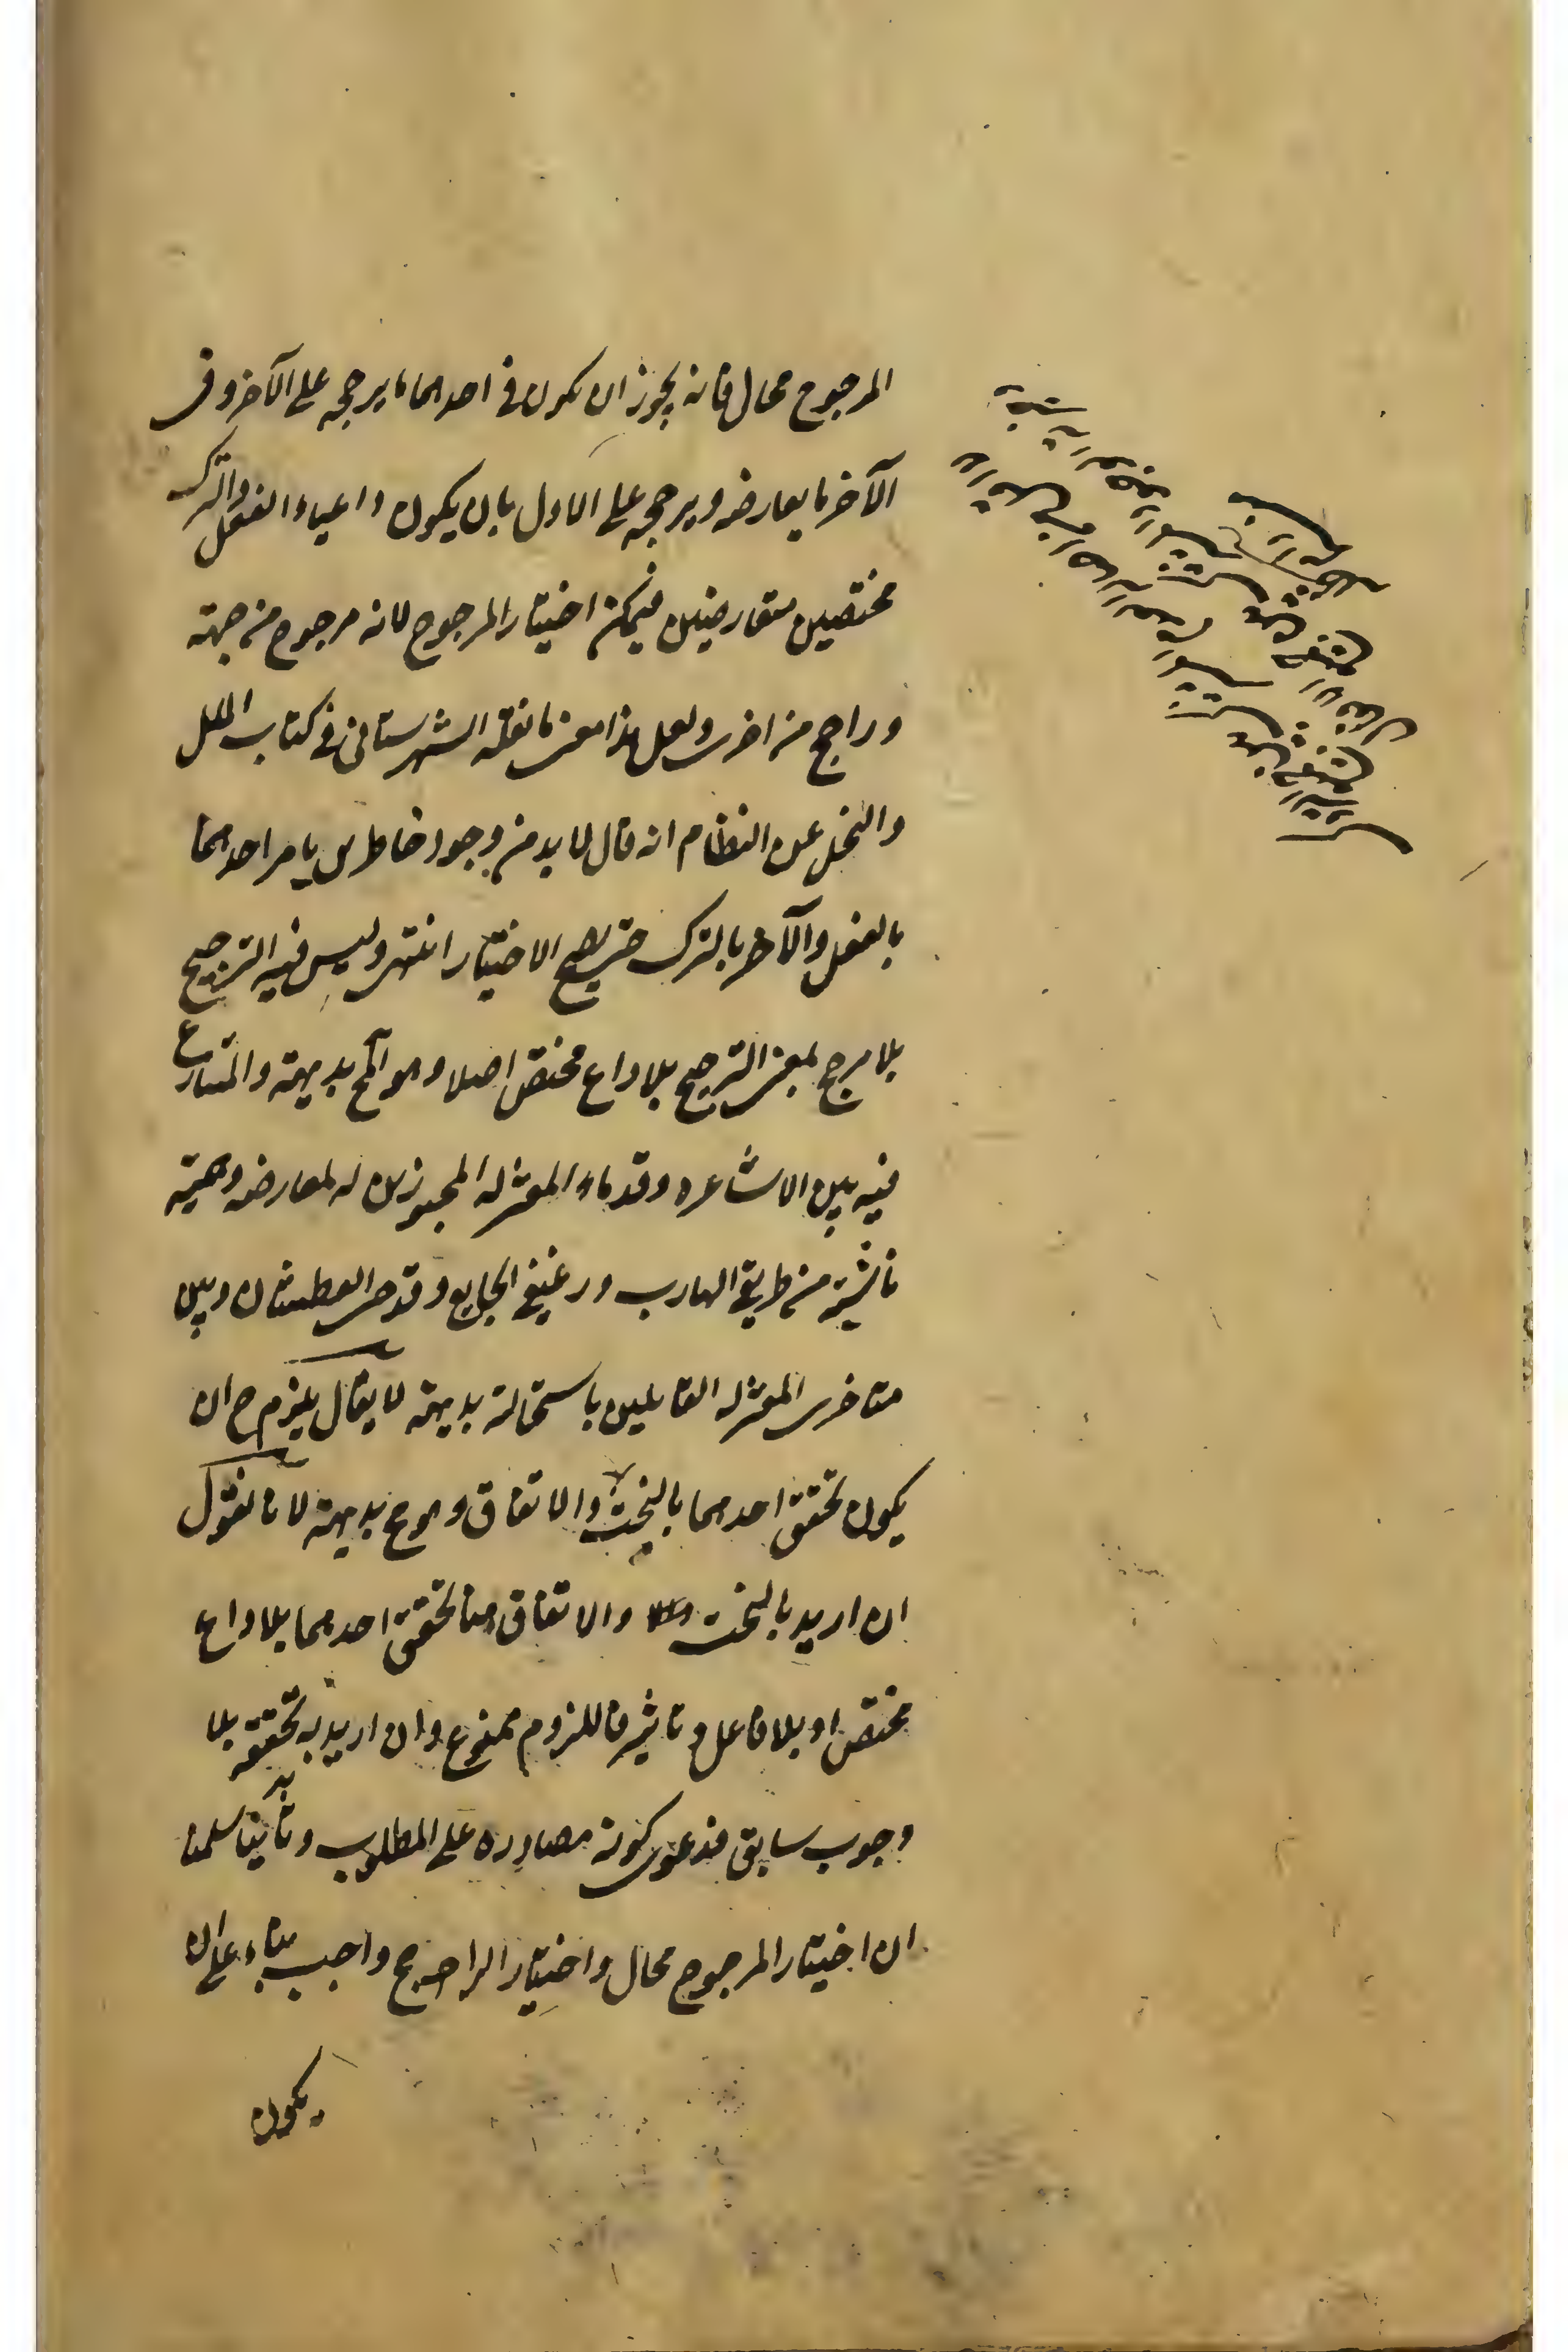 المرجوح محال فانه يجوز ان يكون في احدهما ما يرجحه على الآخر وفى
الآخر ما يعارضه ويرجحه على الاول بان يكون داعيا الفعل والترك
مختصين متعارضين فيمكن اختيار المرجوح لانه مرجوح من جهته
وراجح من اخرى ولعل هذا معنى ما نقله الشهرستانى في كتاب الملل
والنحل عن النظام انه قال لا بد من وجود خاطرين يامر احدهما
بالفعل والآخر بالترك حتى يصح الاختيار انتهى وليس فيه الترجيح
بلا مرجح بمعنى الترجيح بلا داع مختص اصلا وهو المح بديهة والمتنازع
فيه بين الاشاعره وقدماء المعتزله المجوزين له لمعارضه وهمية
ناشية من طريقى الهارب ورغيفى الجايع وقدحى العطشان وبين
متاخرى المعتزله القايلين باستحالته بديهة لا يقال يلزم ح ان
يكون تحقق احدهما بالبخت والاتفاق وهو مح بديهة لانا نقول
ان اريد بالبخت والاتفاق هنا تحقق احدهما بلا داع
مختص او بلا فاعل وتاثير فاللزوم ممنوع وان اريد به تحققه بلا
وجوب سابق فدعوى كونه مصادره على المطلوب وثانيا سلمنا
ان اختيار المرجوح محال واختيار الراجح واجب بناء على ان
يكون